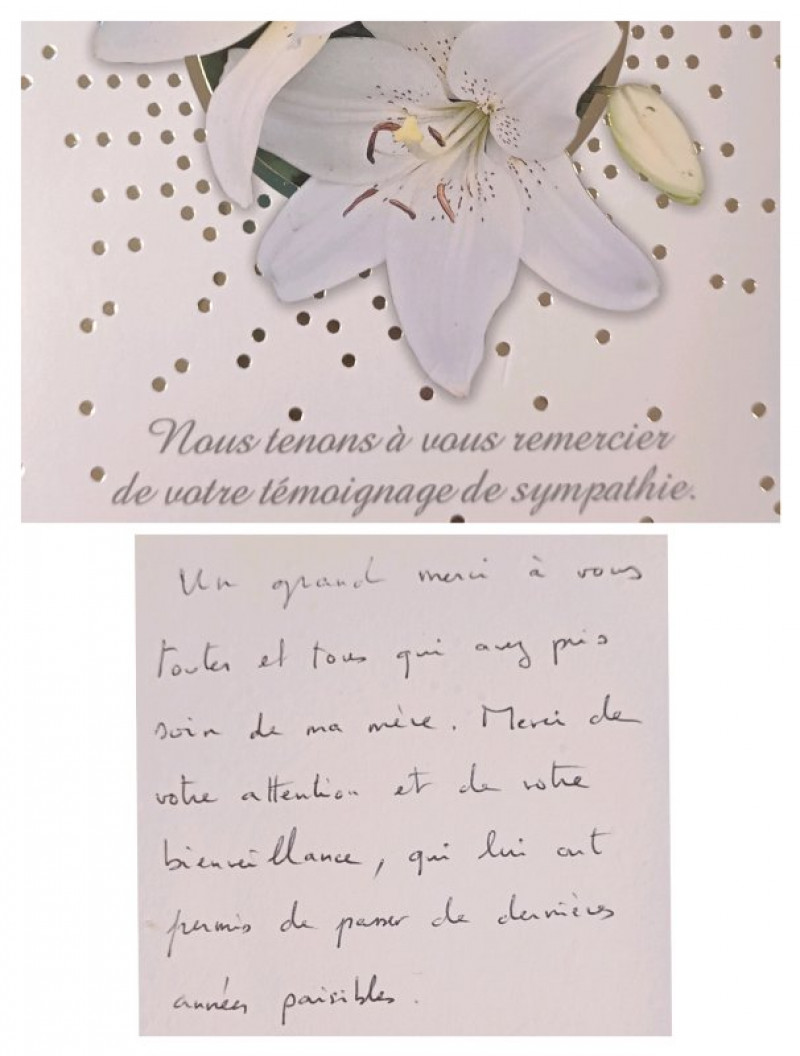 Nous tenons à vous remercier
de votre témoignage de sympathie.
Un grand merci à vous
toutes et tous qui avez pris
soin de ma mère. Merci de
votre attention et de votre
bienveillance, qui lui ont
permis de passer de dernières
années paisibles.